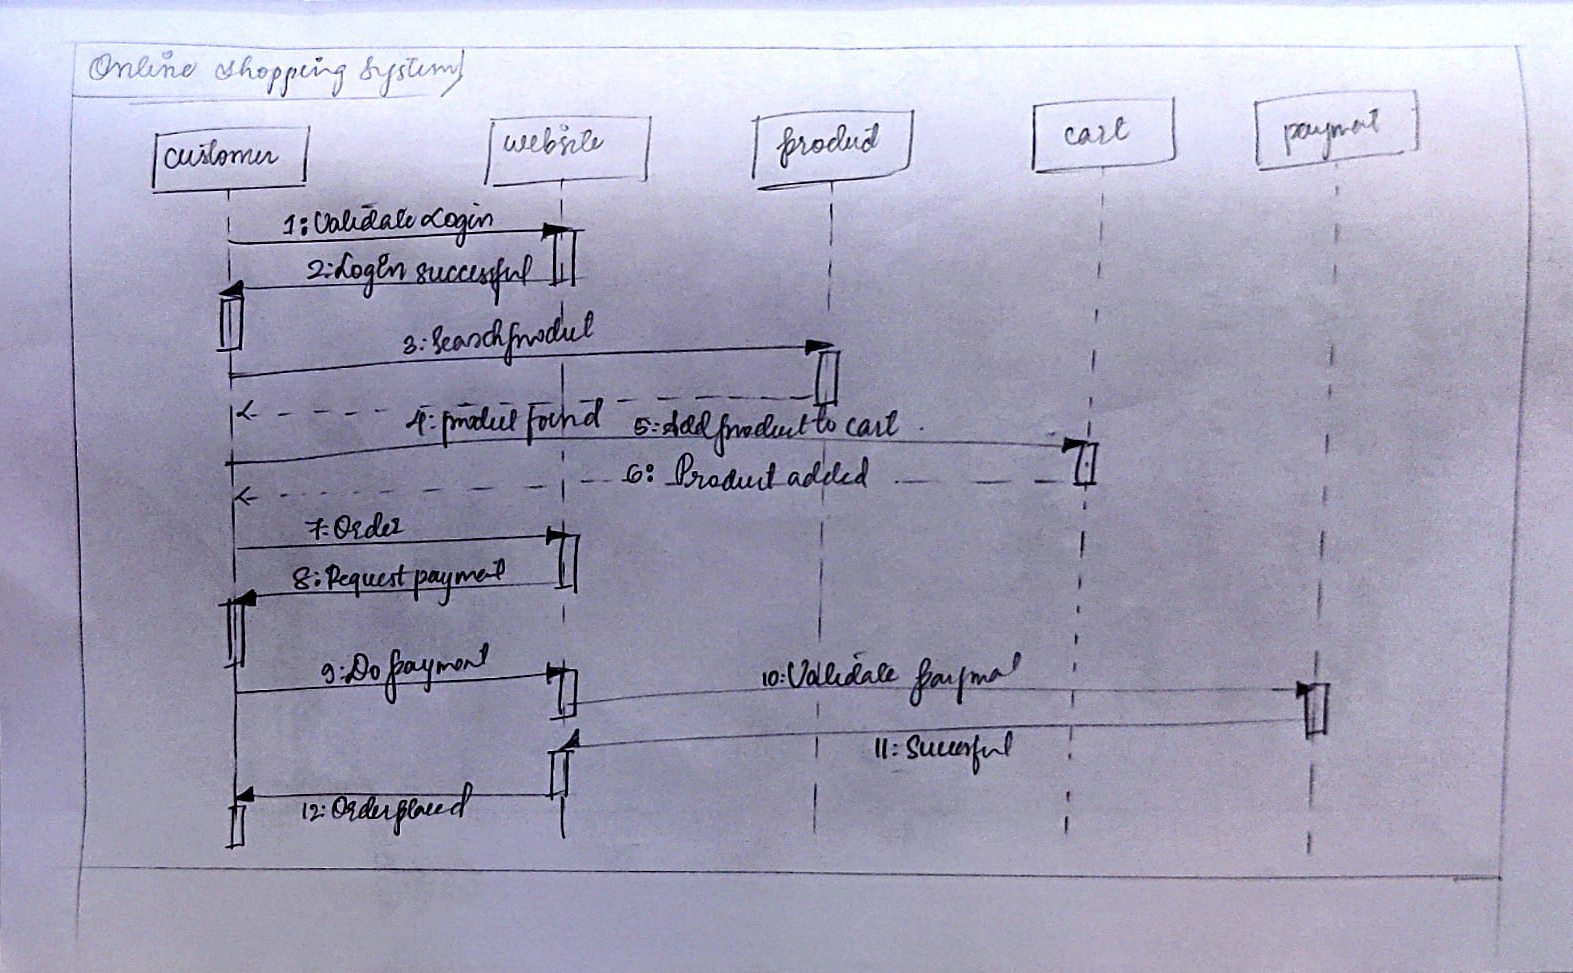 Online Shopping System
customer
website
product
cart
payment
1: Validate Login
2: Login successful
3: Search product
4: product found
5: Add product to cart
6: Product added
7: Order
8: Request payment
9: Do payment
10: Validate payment
11: Successful
12: Order placed